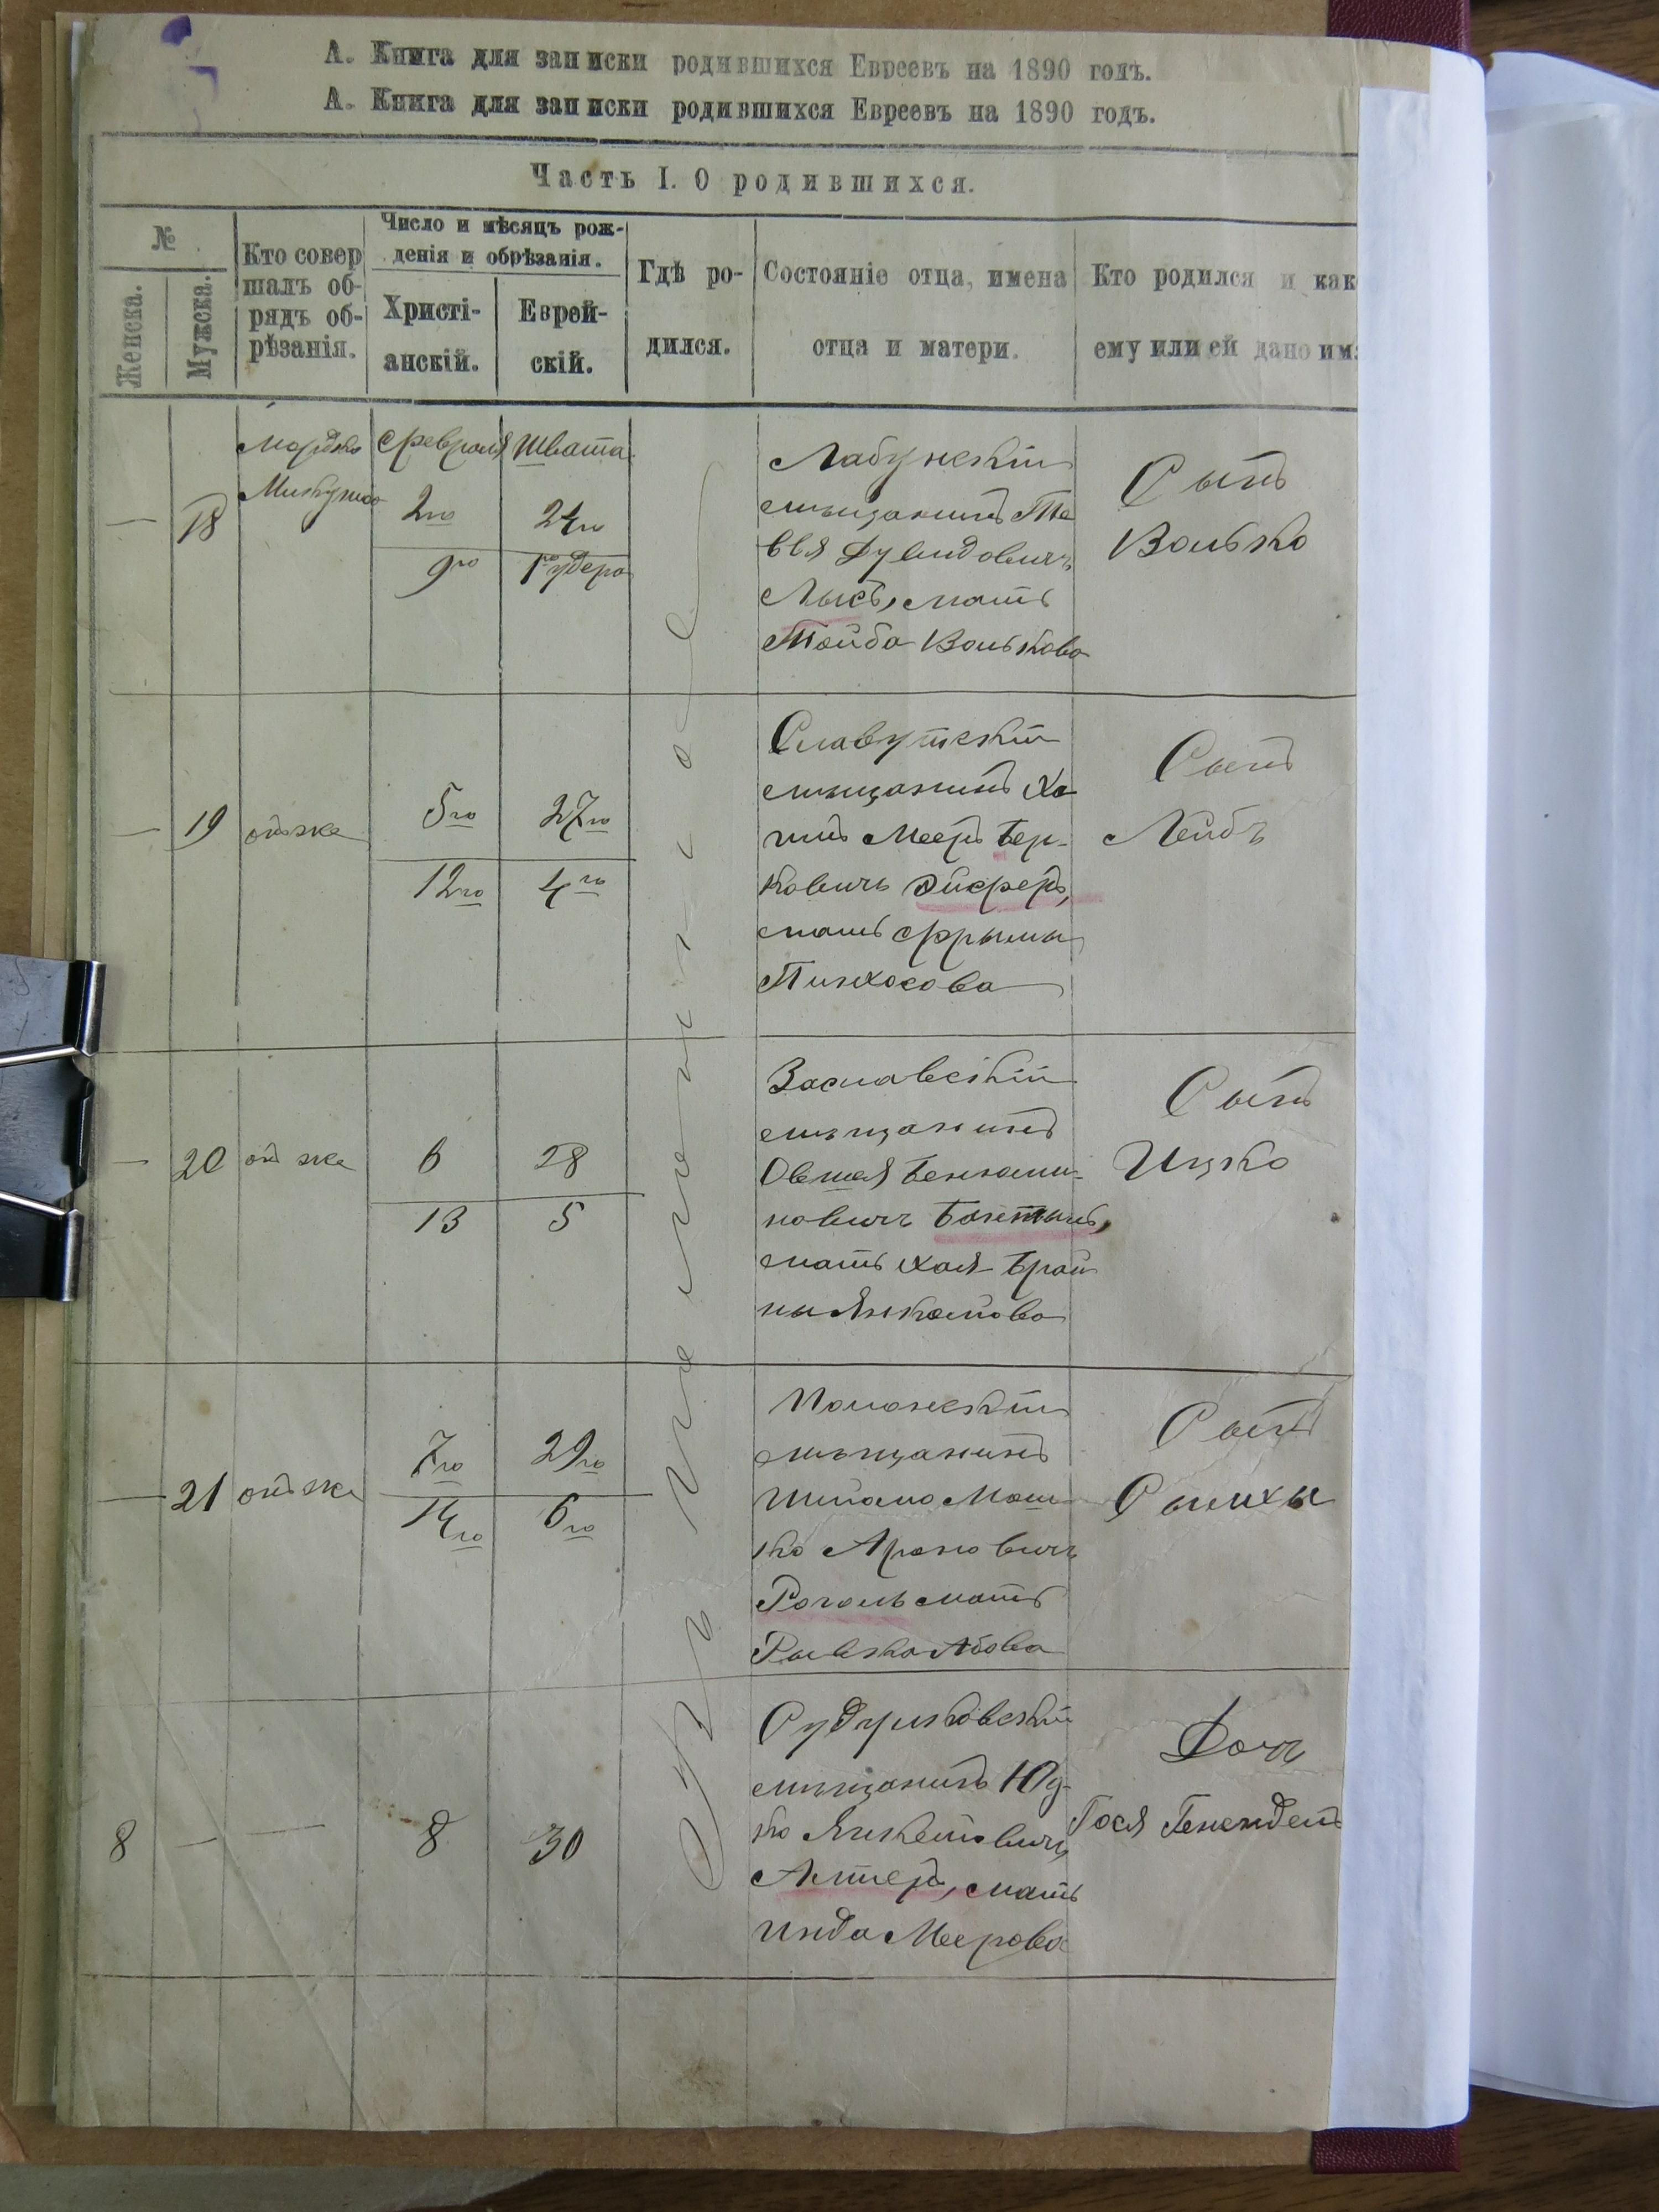 А. Книга для записки родившихся Евреевъ на 1890 годъ.
А. Книга для записки родившихся Евреевъ на 1890 годъ.
Часть I. О родившихся.
№
Женска.
Мужска.
Кто совер
шалъ об-
рядъ об-
рѣзанія.
Число и мѣсяцъ рож-
денія и обрѣзанія.
Христі-
анскій.
Еврей-
скій.
Гдѣ ро-
дился.
Состояніе отца, имена
отца и матери.
Кто родился и как
ему или ей дано им
—
18
Мордко
Февраля
2го
9го
Швата
24го
1го Удера
Лабунскій
мѣщанинъ Те
вья Дувидовичъ
Лысъ, мать
Тойба Волькова
Сынъ
Волько
—
19
онъ же
5го
12го
27го
4го
Славутскій
мѣщанинъ Ха
имъ Мееръ Бер-
ковичъ Ойсферъ,
мать Фрыма
Пинхосова
Сынъ
Лейбъ
—
20
онъ же
6
13
28
5
Заславскій
мѣщанинъ
Овшея Бенюми-
новичъ
мать Хая Брай
на Янкелова
Сынъ
Ицко
—
21
онъ же
7го
14го
29го
6го
Полонскій
мѣщанинъ
Шлиома Мош
ко Ароновичъ
Рогаль мать
Рывка Абова
Сынъ
Сымха
8
—
—
8
30
Судилковскій
мѣщанинъ Юд-
ко Янкелевичъ
Алтеръ, мать
Инда Меерова
Дочь
Гося Генендель